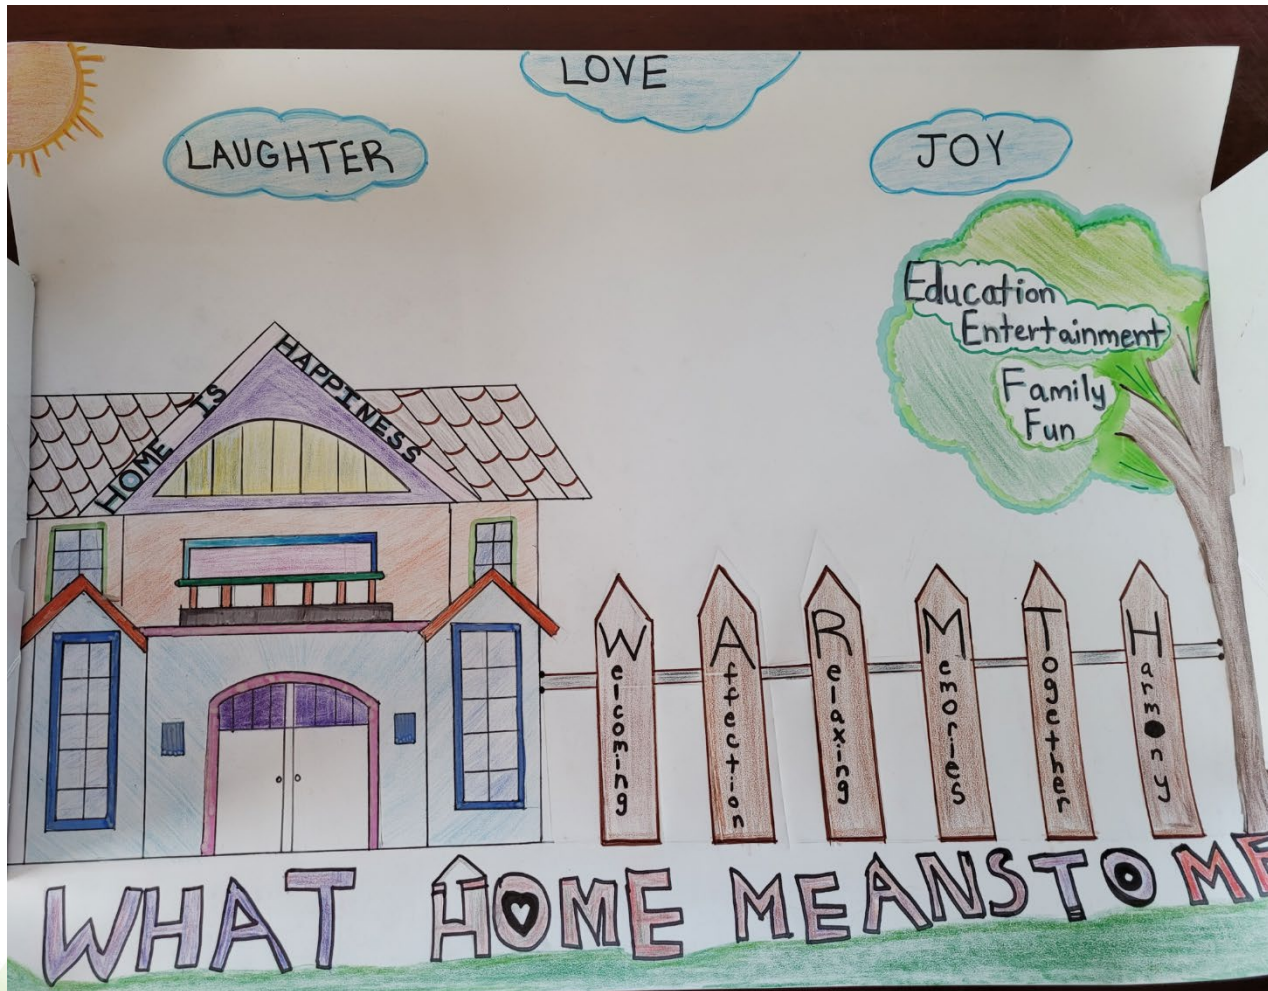 LOVE
LAUGHTER
JOY
Education
Entertainment
Family
Fun
HOME IS HAPPINESS
Welcoming
Affection
Relaxing
Memories
Together
Harmony
WHAT HOME MEANS TO ME